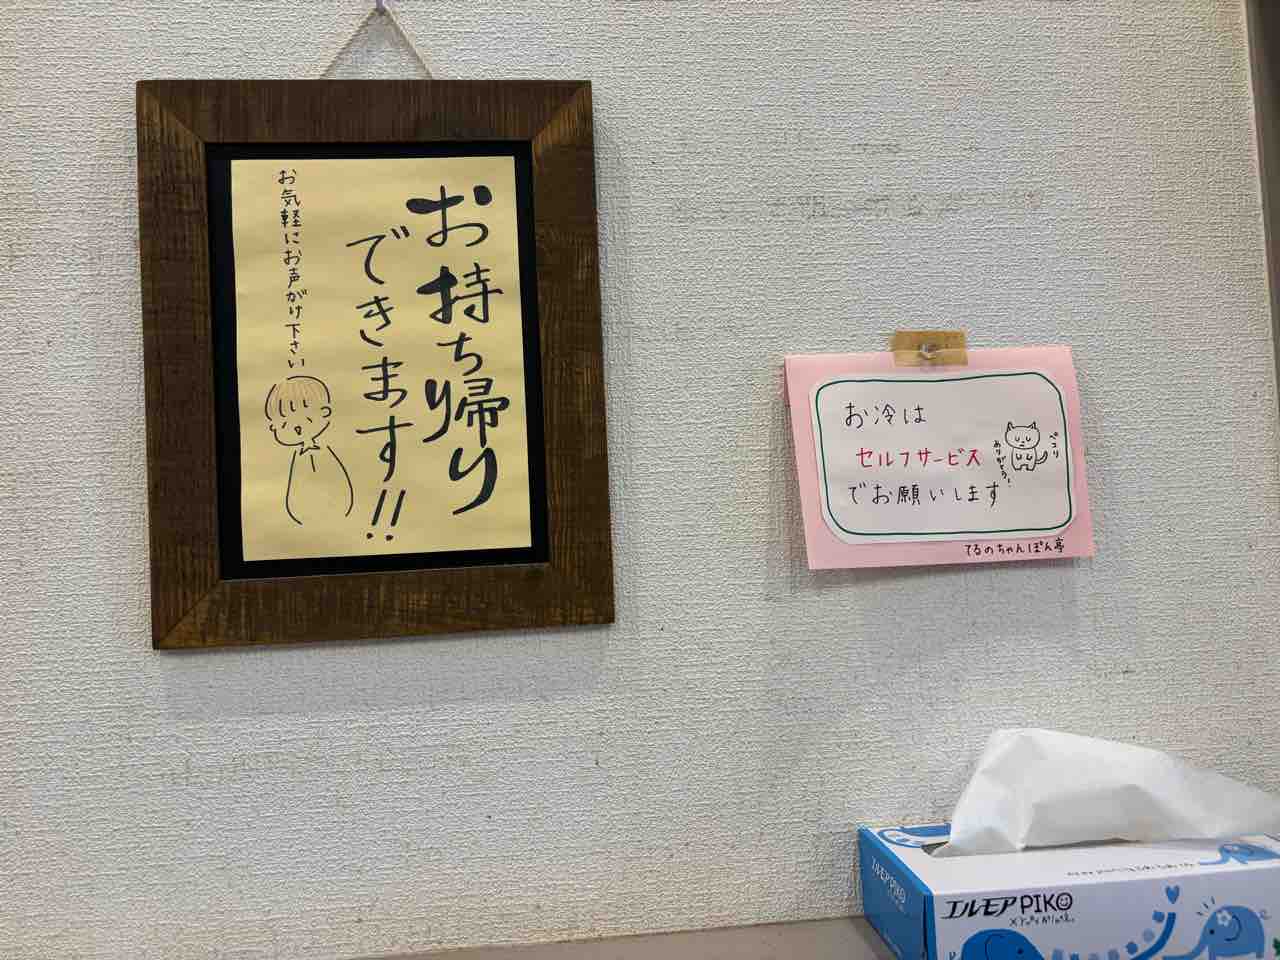 お持ち帰り
できます!!
お気軽にお声がけ下さい
お冷は
セルフサービス
でお願いします
ペコリ
ありがとう!
てるのちゃんぽん亭
エルモア PIKO
エルモア PIKO